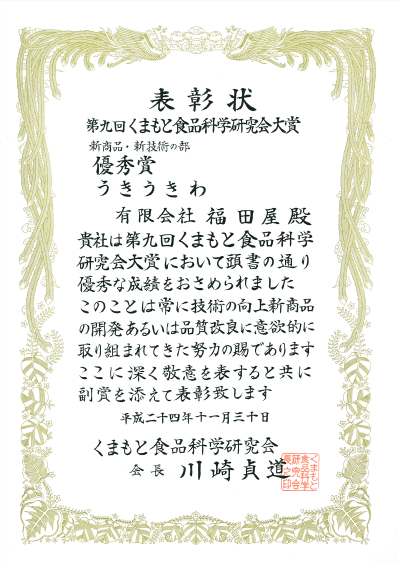 表彰状
第九回くまもと食品科学研究会大賞
新商品・新技術の部
優秀賞
うきうきわ
有限会社 福田屋殿
貴社は第九回くまもと食品科学
研究会大賞において頭書の通り
優秀な成績をおさめられました
このことは常に技術の向上新商品
の開発あるいは品質改良に意欲的に
取り組まれてきた努力の賜であります
ここに深く敬意を表すると共に
副賞を添えて表彰致します
平成二十四年十一月三十日
くまもと食品科学研究会
会長 川崎貞道
くまもと
食品科学
研究会
長之印